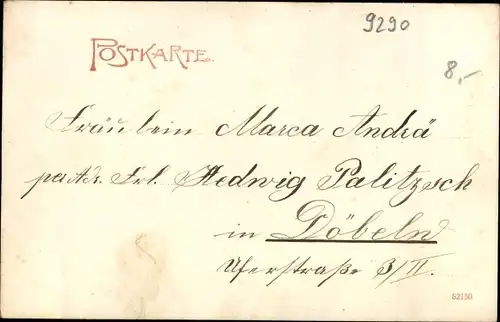 9290
POSTKARTE.
8,-
Fräulein Marca Andrä
per Adr. Frl. Hedwig Palitzsch
in Döbeln
Uferstraße 3/II.
52150